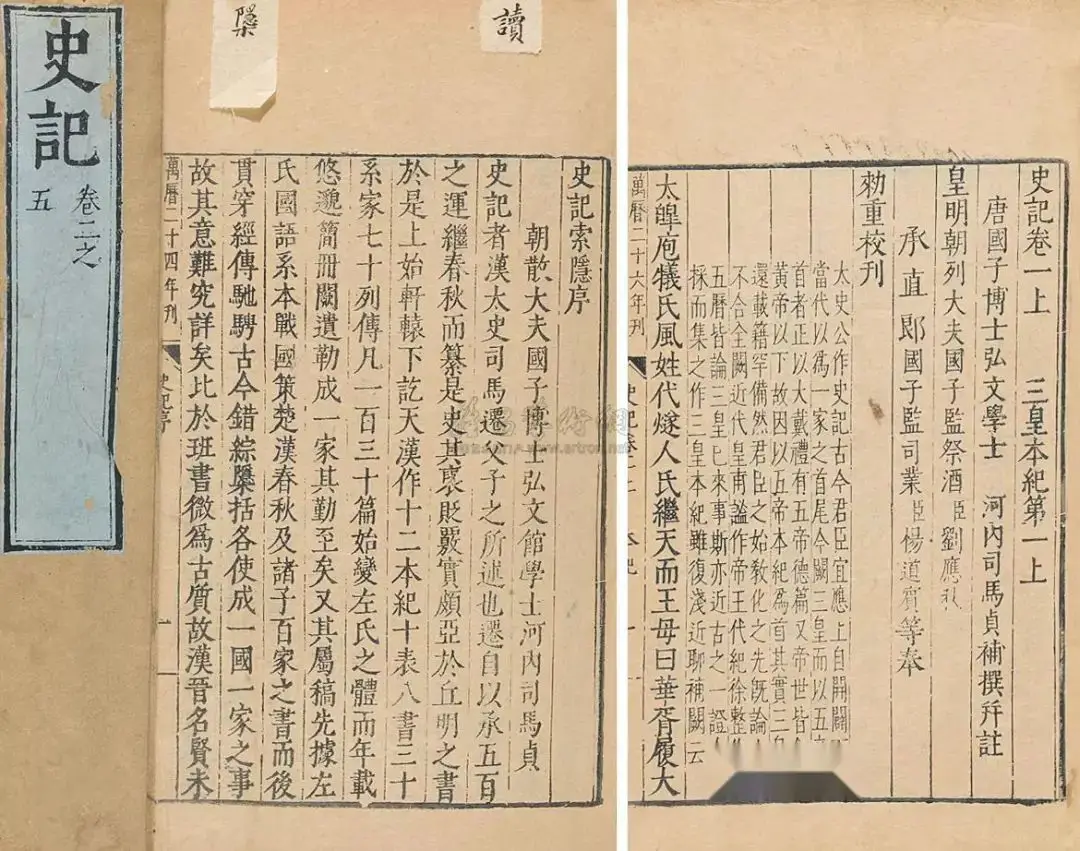 史記
卷二之
五
檃
讀
史記索隱序
朝散大夫國子博士弘文館學士河內司馬貞
史記者漢太史司馬遷父子之所述也遷自以承五百
之運繼春秋而纂是史其襃貶覈實頗亞於丘明之書
於是上始軒轅下訖天漢作十二本紀十表八書三十
系家七十列傳凡一百三十篇始變左氏之體而年載
悠邈簡冊闕遺勒成一家其勤至矣又其屬稿先據左
氏國語系本戰國策楚漢春秋及諸子百家之書而後
貫穿經傳馳騁古今錯綜檃括各使成一國一家之事
故其意難究詳矣比於班書微爲古質故漢晉名賢未
萬曆二十四年刊
史記序
一
史記卷一上 三皇本紀第一上
唐國子博士弘文學士 河內司馬貞補撰并註
皇明朝列大夫國子監祭酒臣劉應秋
承直郎國子監司業臣楊道賓等奉
勑重校刊
太史公作史記古今君臣宜應上自開闢
當代以爲一家之首尾今闕三皇而以五
首者正以大戴禮有五帝德篇又帝世皆
黃帝以下故因以五帝本紀爲首其實三
還載籍罕備然君臣之始敎化之先旣論
不合全闕近代皇甫謐作帝王代紀徐整
五曆皆論三皇已來事斯亦近古之一證
採而集之作三皇本紀雖復淺近聊補闕云
太皡庖犧氏風姓代燧人氏繼天而王母曰華胥履大
萬曆二十六年刊
史記卷一上 本紀
一